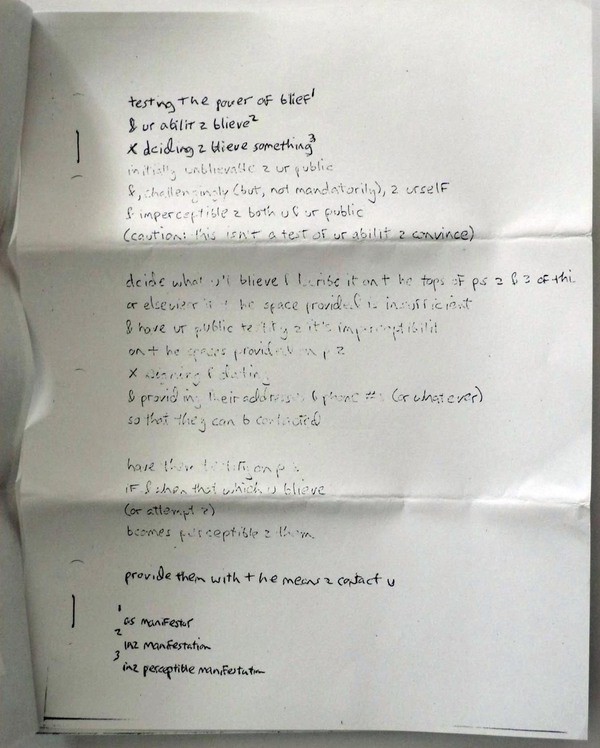 testing the power of blief¹
& ur abilit 2 blieve²
x dciding 2 blieve something³
initially unblievable 2 ur public
&, challengingly (but, not mandatorily), 2 urself
& imperceptible 2 both u & ur public
(caution: this isn't a test of ur abilit 2 convince)
dcide what u'll blieve & scribe it on t he tops of ps 2 & 3 of thi
or elsewhere if t he space provided is insufficient
& have ur public testify 2 it's imperceptibilit
on t he spaces provided on p 2
x signing & dating
& providing their addresses & phone #s (or whatever)
so that they can b contacted
have them testify on p 3
if & when that which u blieve
(or attempt 2)
becomes perceptible 2 them
provide them with t he means 2 contact u
¹ as manifestor
² in2 manifestation
³ in2 perceptible manifestation